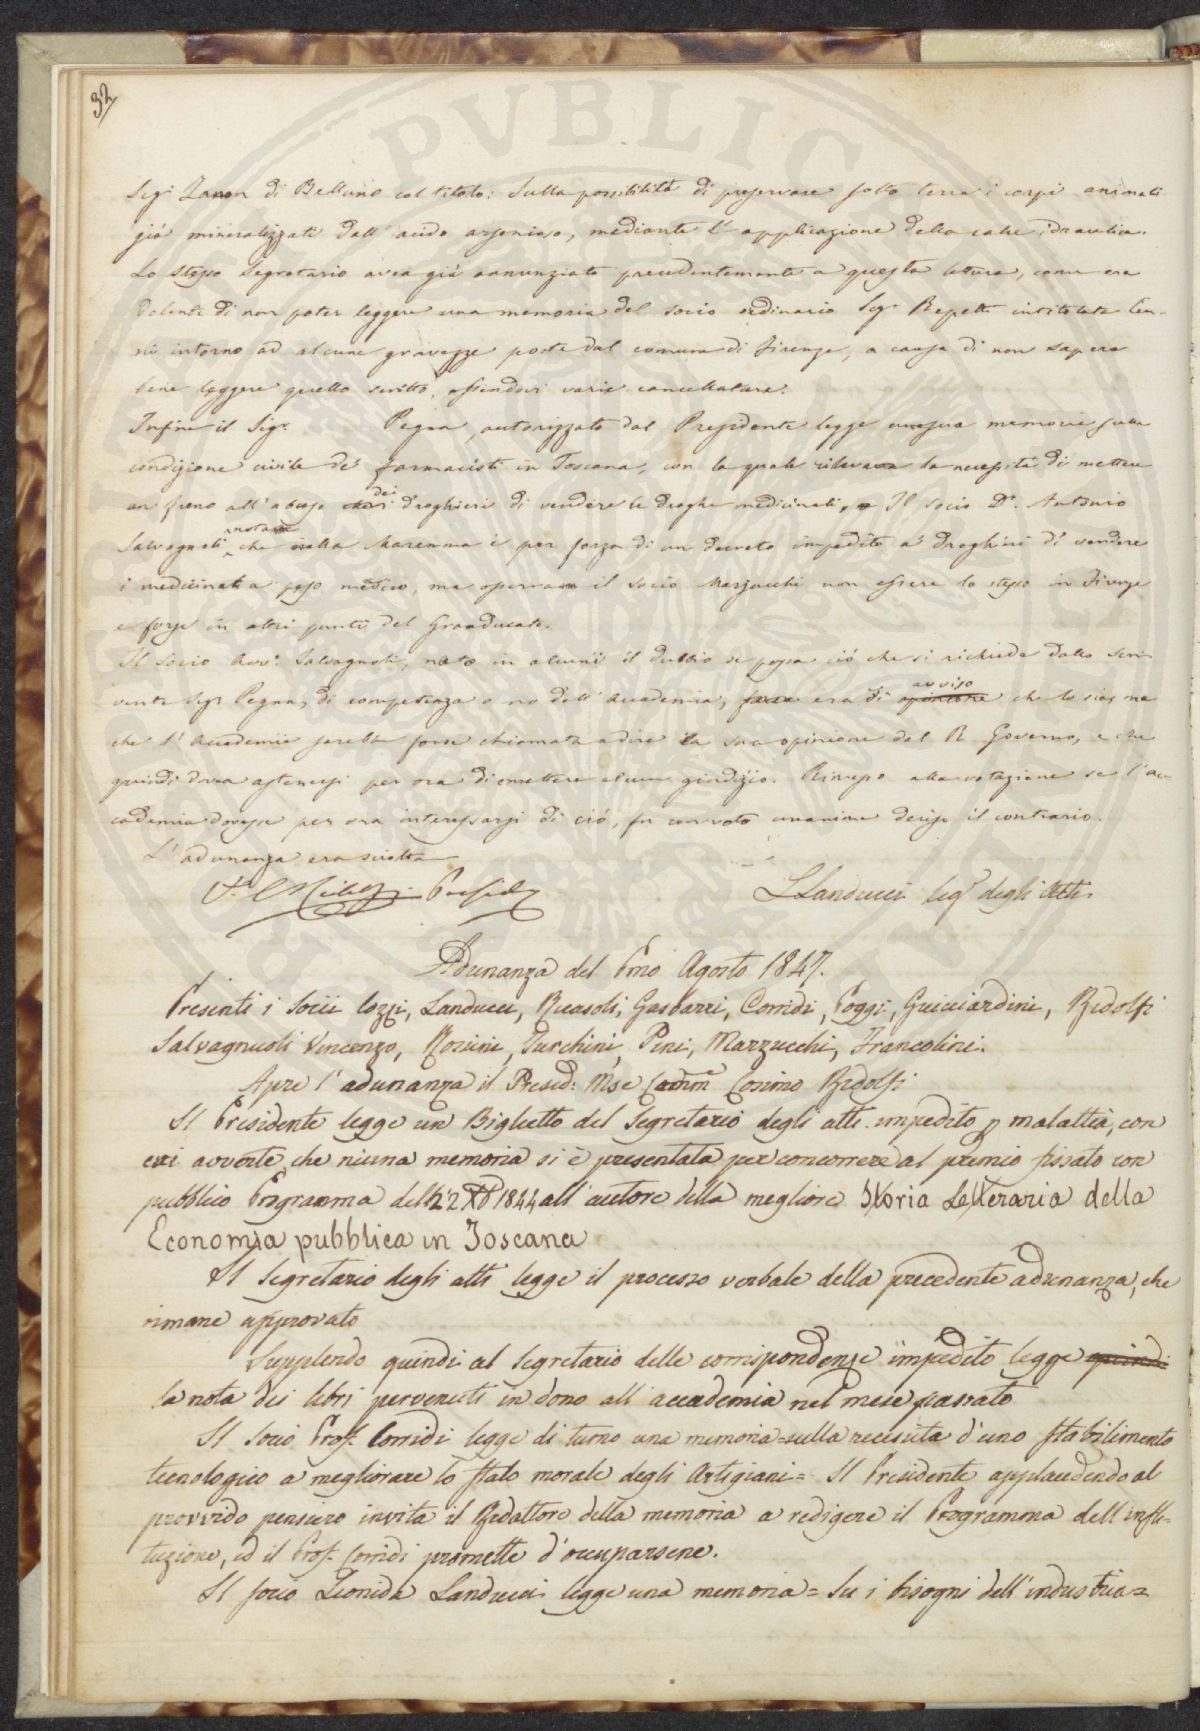 32
Sig.r Zanon di Belluno col titolo: Sulla possibilità di preservare sotto terra i corpi animali
già mineralizzati dall'acido arsenioso, mediante l'applicazione della calce idraulica.
Lo stesso Segretario avea già annunziato precedentemente a questa lettura, come era
dolente di non poter leggere una memoria del socio ordinario Sig.r Repetti intitolata Cen-
ni intorno ad alcune gravezze poste dal comune di Firenze, a causa di non sapere
bene leggere quello scritto, essendovi varie cancellature.
Infine il Sig.r Pegna, autorizzato dal Presidente legge una sua memoria sulla
condizione civile de' farmacisti in Toscana, con la quale rilevava la necessità di mettere
un freno all'abuso dei droghieri di vendere le droghe medicinali, Il socio Dr. Antonio
Salvagnoli notava che nella Maremma è per forza di un decreto impedito a' droghieri di vendere
i medicinali a peso medico, ma osservava il socio Marzucchi non essere lo stesso in Firenze
e forse in altri punti del Granducato.
Il Socio Avv.o Salvagnoli, nato in alcuni il dubbio se possa ciò che si richiede dallo scri-
vente Sigr Pegna, di competenza o no dell'Accademia, era di opinione avviso che lo sia, ma
che l'Accademia sarebbe forse chiamata a dire la sua opinione dal R. Governo, e che
quindi dovea astenersi per ora di emettere alcun giudizio. Rimesso alla votazione se l'ac-
cademia dovesse per ora interessarsi di ciò, fu con voto unanime deciso il contrario.
L'adunanza era sciolta
Presid.e
L Landucci Seg.o degli Atti.
Adunanza del Pmo Agosto 1847.
Presenti i Socii Cozzi, Landucci, Ricasoli, Gasbarri, Corridi, Poggi, Guicciardini, Ridolfi
Salvagnuoli Vincenzo, Rosini, Turchini, Pini, Marzucchi, Francolini.
Apre l'adunanza il Presid: Mse Comm.e Cosimo Ridolfi
Il Presidente legge un Biglietto del Segretario degli atti impedito p malattia, con
cui avverte che niuna memoria si è presentata per concorrere al premio fissato con
pubblico Programma dell 22 Xb 1844 all'autore della migliore Storia Letteraria della
Economia pubblica in Toscana
Il Segretario degli atti legge il processo verbale della precedente adunanza, che
rimane approvato
Supplendo quindi al Segretario delle corrispondenze impedito legge quindi
la nota dei libri pervenuti in dono all'accademia nel mese passato
Il Socio Prof. Corridi legge di turno una memoria = sulla necessità d'uno stabilimento
tecnologico a megliorare lo stato morale degli Artigiani = Il Presidente applaudendo al
provvido pensiero invita il Redattore della memoria a redigere il Programma dell'insti-
tuzione, ed il Prof. Corridi promette d'occuparsene.
Il socio Leonida Landucci legge una memoria = Su i bisogni dell'industria =